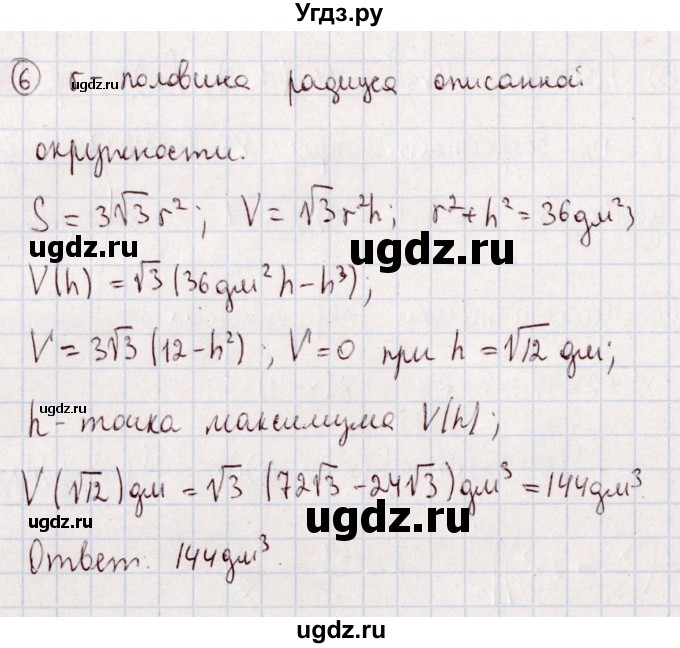 Угдз.ру
⑥ r - половина радиуса описанной
ugdz.ru
окружности.
S = 3√3 r²; V = √3 r²h; r² + h² = 36 дм²;
ugdz.ru
ugdz.ru
V(h) = √3 (36 дм² h - h³);
V' = 3√3 (12 - h²); V' = 0 при h = √12 дм;
ugdz.ru
h - точка максимума V(h);
V(√12) дм = √3 (72√3 - 24√3) дм³ = 144 дм³.
ugdz.ru
ugdz.ru
Ответ: 144 дм³.
ugdz.ru